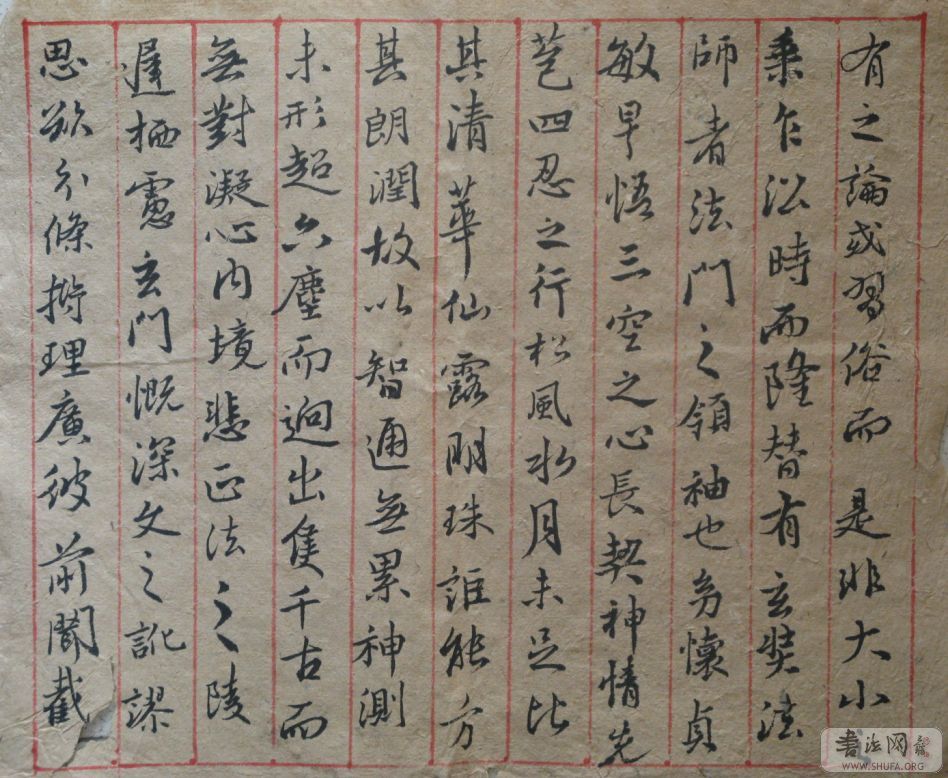 有之論或習俗而是非大小
乘乍沿時而隆替有玄奘法
師者法門之領袖也幼懷貞
敏早悟三空之心長契神情先
苞四忍之行松風水月未足比
其清華仙露明珠詎能方
其朗潤故以智通無累神測
未形超六塵而迥出隻千古而
無對凝心內境悲正法之陵
遲栖慮玄門慨深文之訛謬
思欲分條析理廣彼前聞截
書法网
WWW.SHUFA.ORG